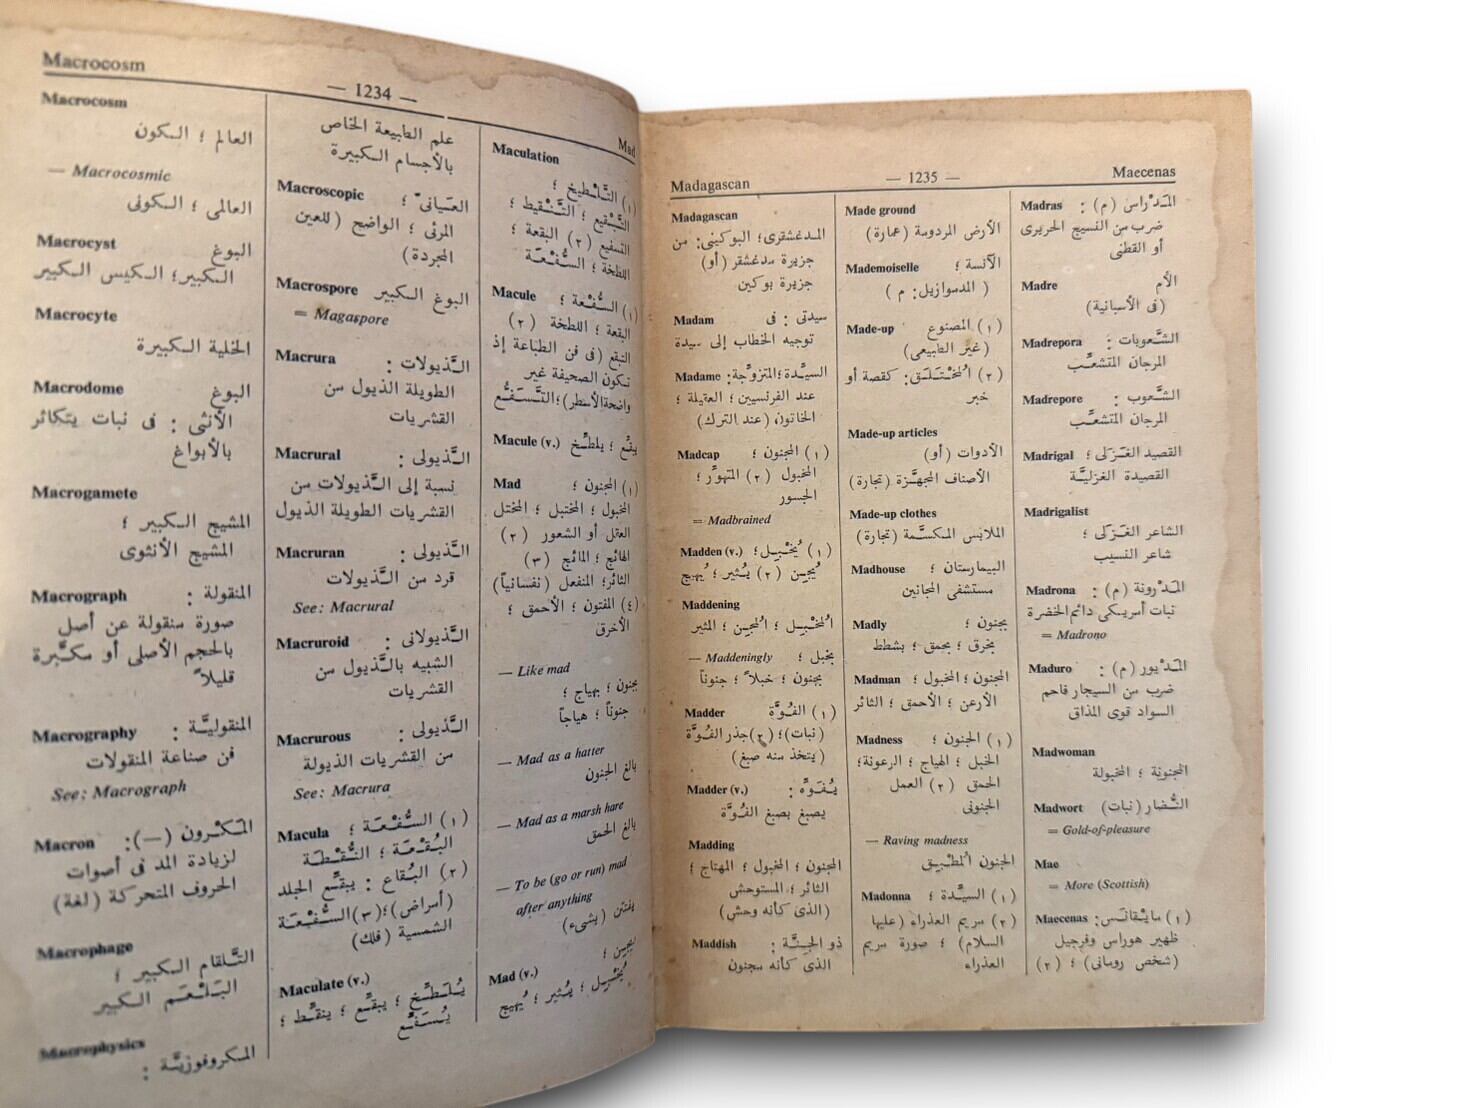 Macrocosm
— 1234 —
Mad
Macrocosm
العالم ؛ الكون
— Macrocosmic
العالمى ؛ الكونى
Macrocyst البوغ
الكبير؛ الكيس الكبير
Macrocyte
الخلية الكبيرة
Macrodome البوغ
الأنثى : فى نبات يتكاثر
بالأبواغ
Macrogamete
المشيج الكبير ؛
المشيج الأنثوى
Macrograph المنقولة :
صورة منقولة عن أصل
بالحجم الأصلى أو مكبَّرة
قليلاً
Macrography المنقوليَّة :
فن صناعة المنقولات
See: Macrograph
Macron المَكْرون (—):
لزيادة المد فى أصوات
الحروف المتحركة (لغة)
Macrophage
التَّلقام الكبير ؛
البَلْعَم الكبير
Macrophysics
المكروفوزيَّة :
علم الطبيعة الخاص
بالأجسام الكبيرة
Macroscopic العَيانىّ ؛
المرئى ؛ الواضح (للعين
المجردة)
Macrospore البوغ الكبير
= Magaspore
Macrura الذَّيولات :
الطويلة الذيول من
القشريات
Macrural الذَّيولى :
نسبة إلى الذَّيولات من
القشريات الطويلة الذيول
Macruran الذَّيولى :
قرد من الذَّيولات
See: Macrural
Macruroid الذَّيولانى :
الشبيه بالذَّيول من
القشريات
Macrurous الذَّيولى :
من القشريات الذيولة
See: Macrura
Macula (١) السُّفْعَة ؛
البُقْعَة ؛ النُّقْطَة
(٢) البُقاع : يبقِّع الجلد
(أمراض)؛(٣)السُّفْعَة
الشمسية (فلك)
Maculate (v.)
يُلَطِّخ ؛ يبقِّع ؛ ينقِّط ؛
يُسَفِّع
Maculation
(١) التَّلْطيخ ؛
التَّبْقيع ؛ التَّنْقيط ؛
التسفيع (٢) البقعة ؛
اللطخة ؛ السُّفْعَة
Macule (١) السُّفْعة ؛
البقعة ؛ اللطخة (٢)
التبقع (فى فن الطباعة إذ
تكون الصحيفة غير
واضحةالأسطر)؛التَّسَفُّع
Macule (v.) يبقِّع ؛ يلطِّخ
Mad (١) المجنون ؛
المخبول ؛ المختبل ؛ المختل
العقل أو الشعور (٢)
الهائج ؛ المائج (٣)
الثائر؛ المنفعل (نفسانياً)
(٤) المفتون ؛ الأحمق ؛
الأخرق
— Like mad
بجنون ؛ بهياج ؛
جنوناً ؛ هياجاً
— Mad as a hatter
بالغ الجنون
— Mad as a marsh hare
بالغ الحمق
— To be (go or run) mad
after anything
يفتتن (بشىء)
Mad (v.) يجنِّن ؛
يُخَبِّل ؛ يُثير ؛ يُهيج
Madagascan
— 1235 —
Maecenas
Madagascan
المدغشقرى؛ البوكينى: من
جزيرة مدغشقر (أو)
جزيرة بوكين
Madam سيدتى : فى
توجيه الخطاب إلى سيدة
Madame السيَّدة؛المتزوِّجة:
عند الفرنسيين ؛ العقيلة ؛
الخاتون، (عند الترك)
Madcap (١) المجنون ؛
المخبول (٢) المتهوِّر ؛
الجسور
= Madbrained
Madden (v.) (١) يُخَبِّل ؛
يُجنِّن (٢) يُثير ؛ يُهيج
Maddening
المُخبِّل ؛ المُجنِّن ؛ المثير
— Maddeningly بخبل ؛
بجنون ؛ خبلاً ؛ جنوناً
Madder (١) الفُوَّة
(نبات)؛ (٢)جذر الفُوَّة
(يتخذ منه صبغ)
Madder (v.) يُفَوِّه :
يصبغ بصبغ الفُوَّة
Madding
المجنون ؛ المخبول ؛ المهتاج ؛
الثائر ؛ المستوحش
(الذى كأنه وحش)
Maddish ذو الجِنَّة :
الذى كأنه مجنون
Made ground
الأرض المردومة (عمارة)
Mademoiselle الآنسة ؛
( المدموازيل: م )
Made-up (١) المصنوع
(غير الطبيعى)
(٢) المُخْتَلَق: كقصة أو
خبر
Made-up articles
الأدوات (أو)
الأصناف المجهَّزة (تجارة)
Made-up clothes
الملابس المكسَّمة (تجارة)
Madhouse البيمارستان ؛
مستشفى المجانين
Madly بجنون ؛
بخرق ؛ بحمق ؛ بشطط
Madman المجنون ؛ المخبول ؛
الأرعن ؛ الأحمق ؛ الثائر
Madness (١) الجنون ؛
الخبل ؛ الهياج ؛ الرعونة؛
الحمق (٢) العمل
الجنونى
— Raving madness
الجنون المُطبِق
Madonna (١) السيَّدة ؛
(٢) مريم العذراء (عليها
السلام) ؛ صورة مريم
العذراء
Madras المَدْراس (م) :
ضرب من النسيج الحريرى
أو القطنى
Madre الأم
(فى الأسبانية)
Madrepora الشَّعوبات :
المرجان المتشعِّب
Madrepore الشَّعوب :
المرجان المتشعِّب
Madrigal القصيد الغَزَلى ؛
القصيدة الغزليَّة
Madrigalist
الشاعر الغَزَلى ؛
شاعر النسيب
Madrona المَدْرونة (م) :
نبات أمريكى دائم الخضرة
= Madrono
Maduro المَدْيور (م) :
ضرب من السيجار فاحم
السواد قوى المذاق
Madwoman
المجنونة ؛ المخبولة
Madwort النُّضار (نبات)
= Gold-of-pleasure
Mae
= More (Scottish)
Maecenas (١) مايْقانَس:
ظهير هوراس وفرجيل
(شخص رومانى) ؛ (٢)